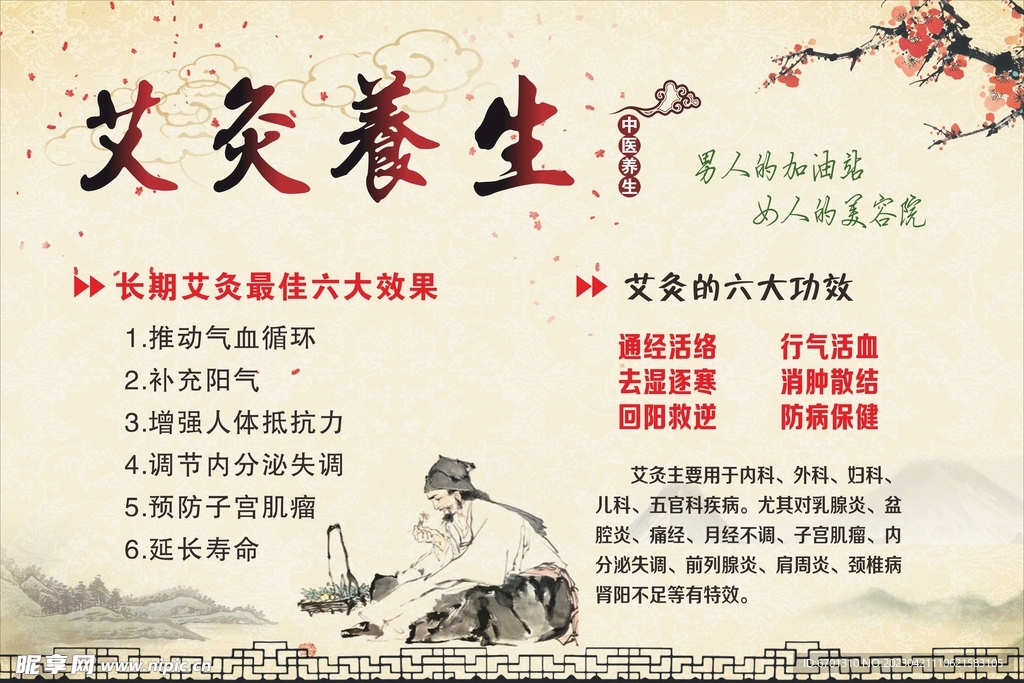 艾灸養生
中医养生
男人的加油站
女人的美容院
长期艾灸最佳六大效果
1.推动气血循环
2.补充阳气
3.增强人体抵抗力
4.调节内分泌失调
5.预防子宫肌瘤
6.延长寿命
艾灸的六大功效
通经活络 行气活血
去湿逐寒 消肿散结
回阳救逆 防病保健
艾灸主要用于内科、外科、妇科、
儿科、五官科疾病。尤其对乳腺炎、盆
腔炎、痛经、月经不调、子宫肌瘤、内
分泌失调、前列腺炎、肩周炎、颈椎病
肾阳不足等有特效。
昵享网 www.nipic.cn
ID:6701310 NO:20230421110621583105